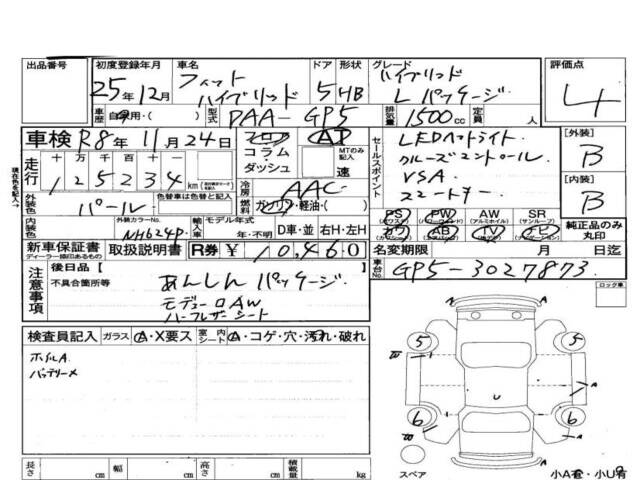 出品番号 初度登録年月 車名 ドア 形状 グレード 評価点
25年12月 フィット ハイブリッド 5 HB ハイブリッド Lパッケージ 4
車歴 自家用・( ) 型式 DAA-GP5 排気量 1500cc 定員 人
車検 R8年 11月 24日 フロア コラム・ダッシュ AT MTのみ記入 速
セールスポイント LEDヘッドライト
クルーズコントロール
VSA
スマートキー
[外装] B
[内装] B
現在所を記入→
走行 十万千百十 125234 km
冷房 AAC
燃料 ガソリン・軽油・( )
外装色 パール 色替車は色替と記入
内装色 外装カラーNo. NH624P 輸入車 モデル年式 年・不明 D車・並 右H・左H
PS PW AW SR
(アルミホイル) (サンルーフ)
カワ AB TV ナビ
純正品のみ丸印
新車保証書 取扱説明書 R券 ¥ 10,460
ディーラー印のあるもの
名変期限 月 日迄
車台No. GP5-3027873
注意事項 後日品( )
不具合箇所等 あんしんパッケージ
モデューロAW
ハーフレザーシート
ロック車
検査員記入 ガラス A・X要ス 室内シート A・コゲ・穴・汚れ・破れ
ホイルA
バッテリーメ
5 5
W A
U
W A
6 6
A
スペア 小A有・小U有
長さ cm 幅 cm 高さ cm 積載量 kg